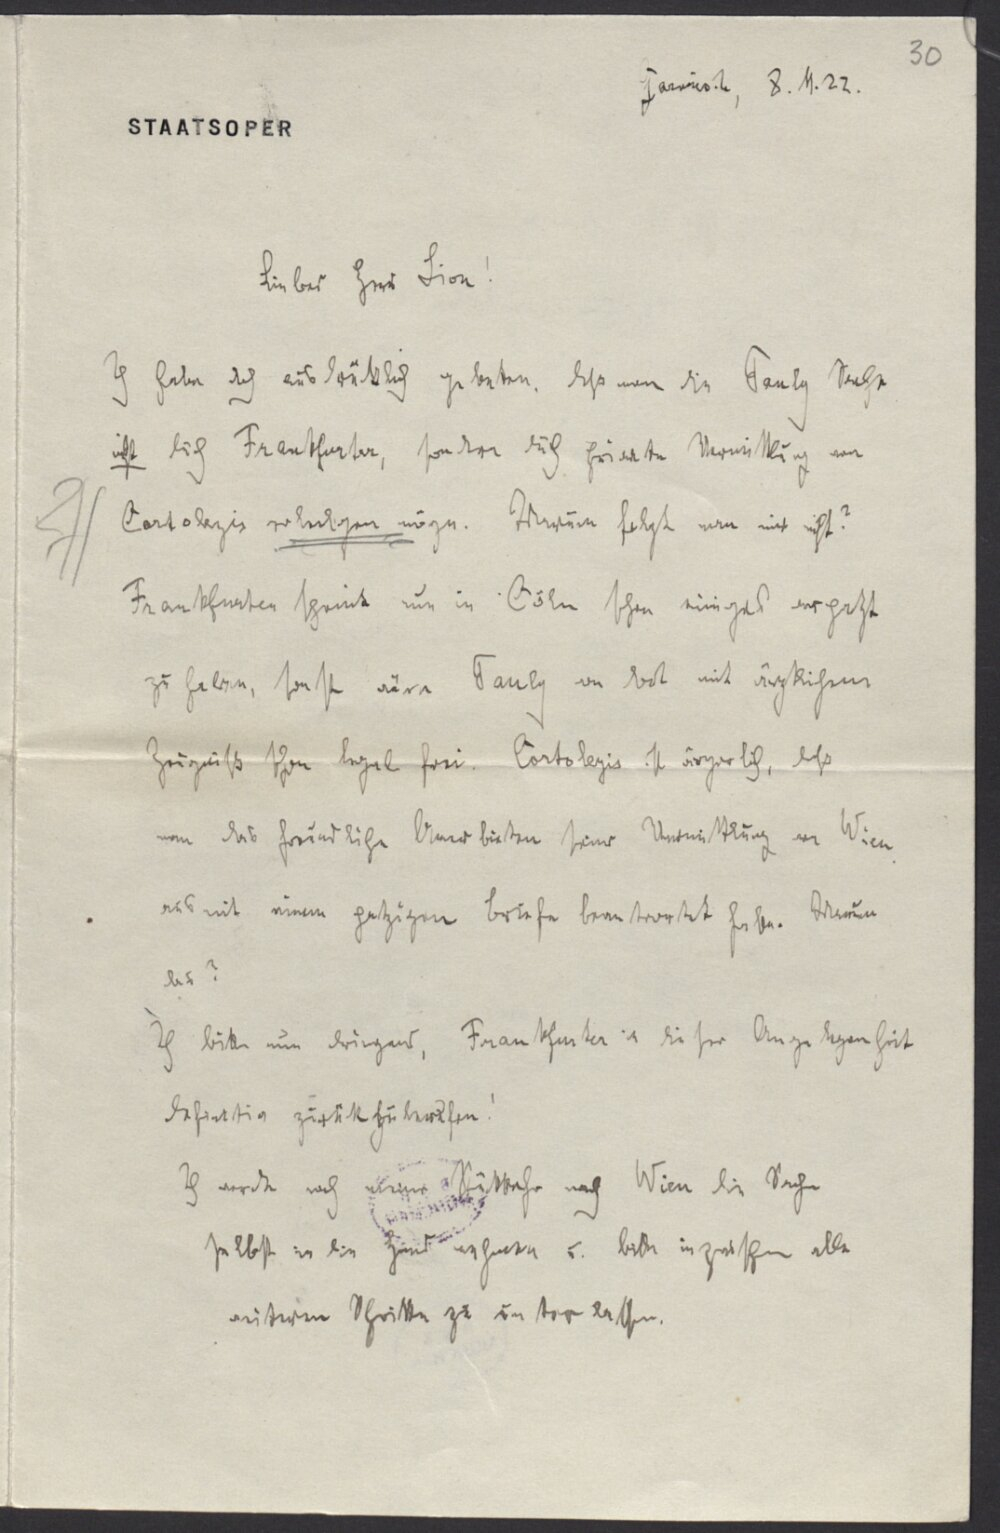 30
Garmisch, 8. 11. 22.
STAATSOPER
Lieber Herr Lion!
Ich habe doch ausdrücklich gebeten, dass man die Pauly Sache
nicht durch Frankfurter, sondern durch private Vermittlung von
Cortolezis erledigen möge. Warum folgt man mir nicht?
Frankfurter scheint nun in Cöln schon einiges verpatzt
zu haben, sonst wäre Pauly von dort mit ärztlichem
Zeugniß schon legal frei. Cortolezis ist ärgerlich, dass
man das freundliche Anerbieten seiner Vermittlung von Wien
aus mit einem patzigen Briefe beantwortet habe. Warum
das?
Ich bitte nun dringend, Frankfurter in dieser Angelegenheit
definitiv zurückzuberufen!
Ich werde nach meiner Rückkehr nach Wien die Sache
selbst in die Hand nehmen u. bitte inzwischen alle
weiteren Schritte zu unterlassen.